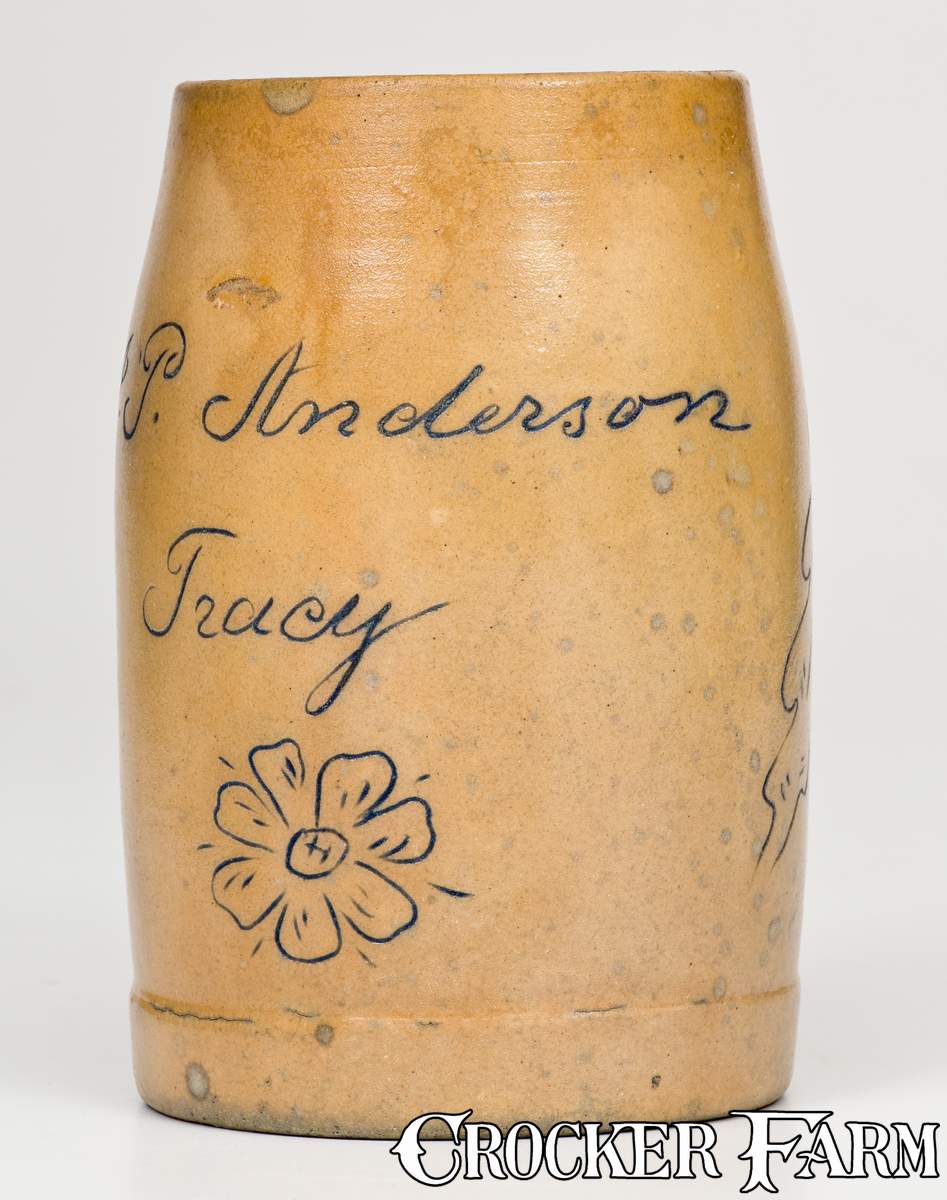 P. Anderson
Tracy
CROCKER FARM